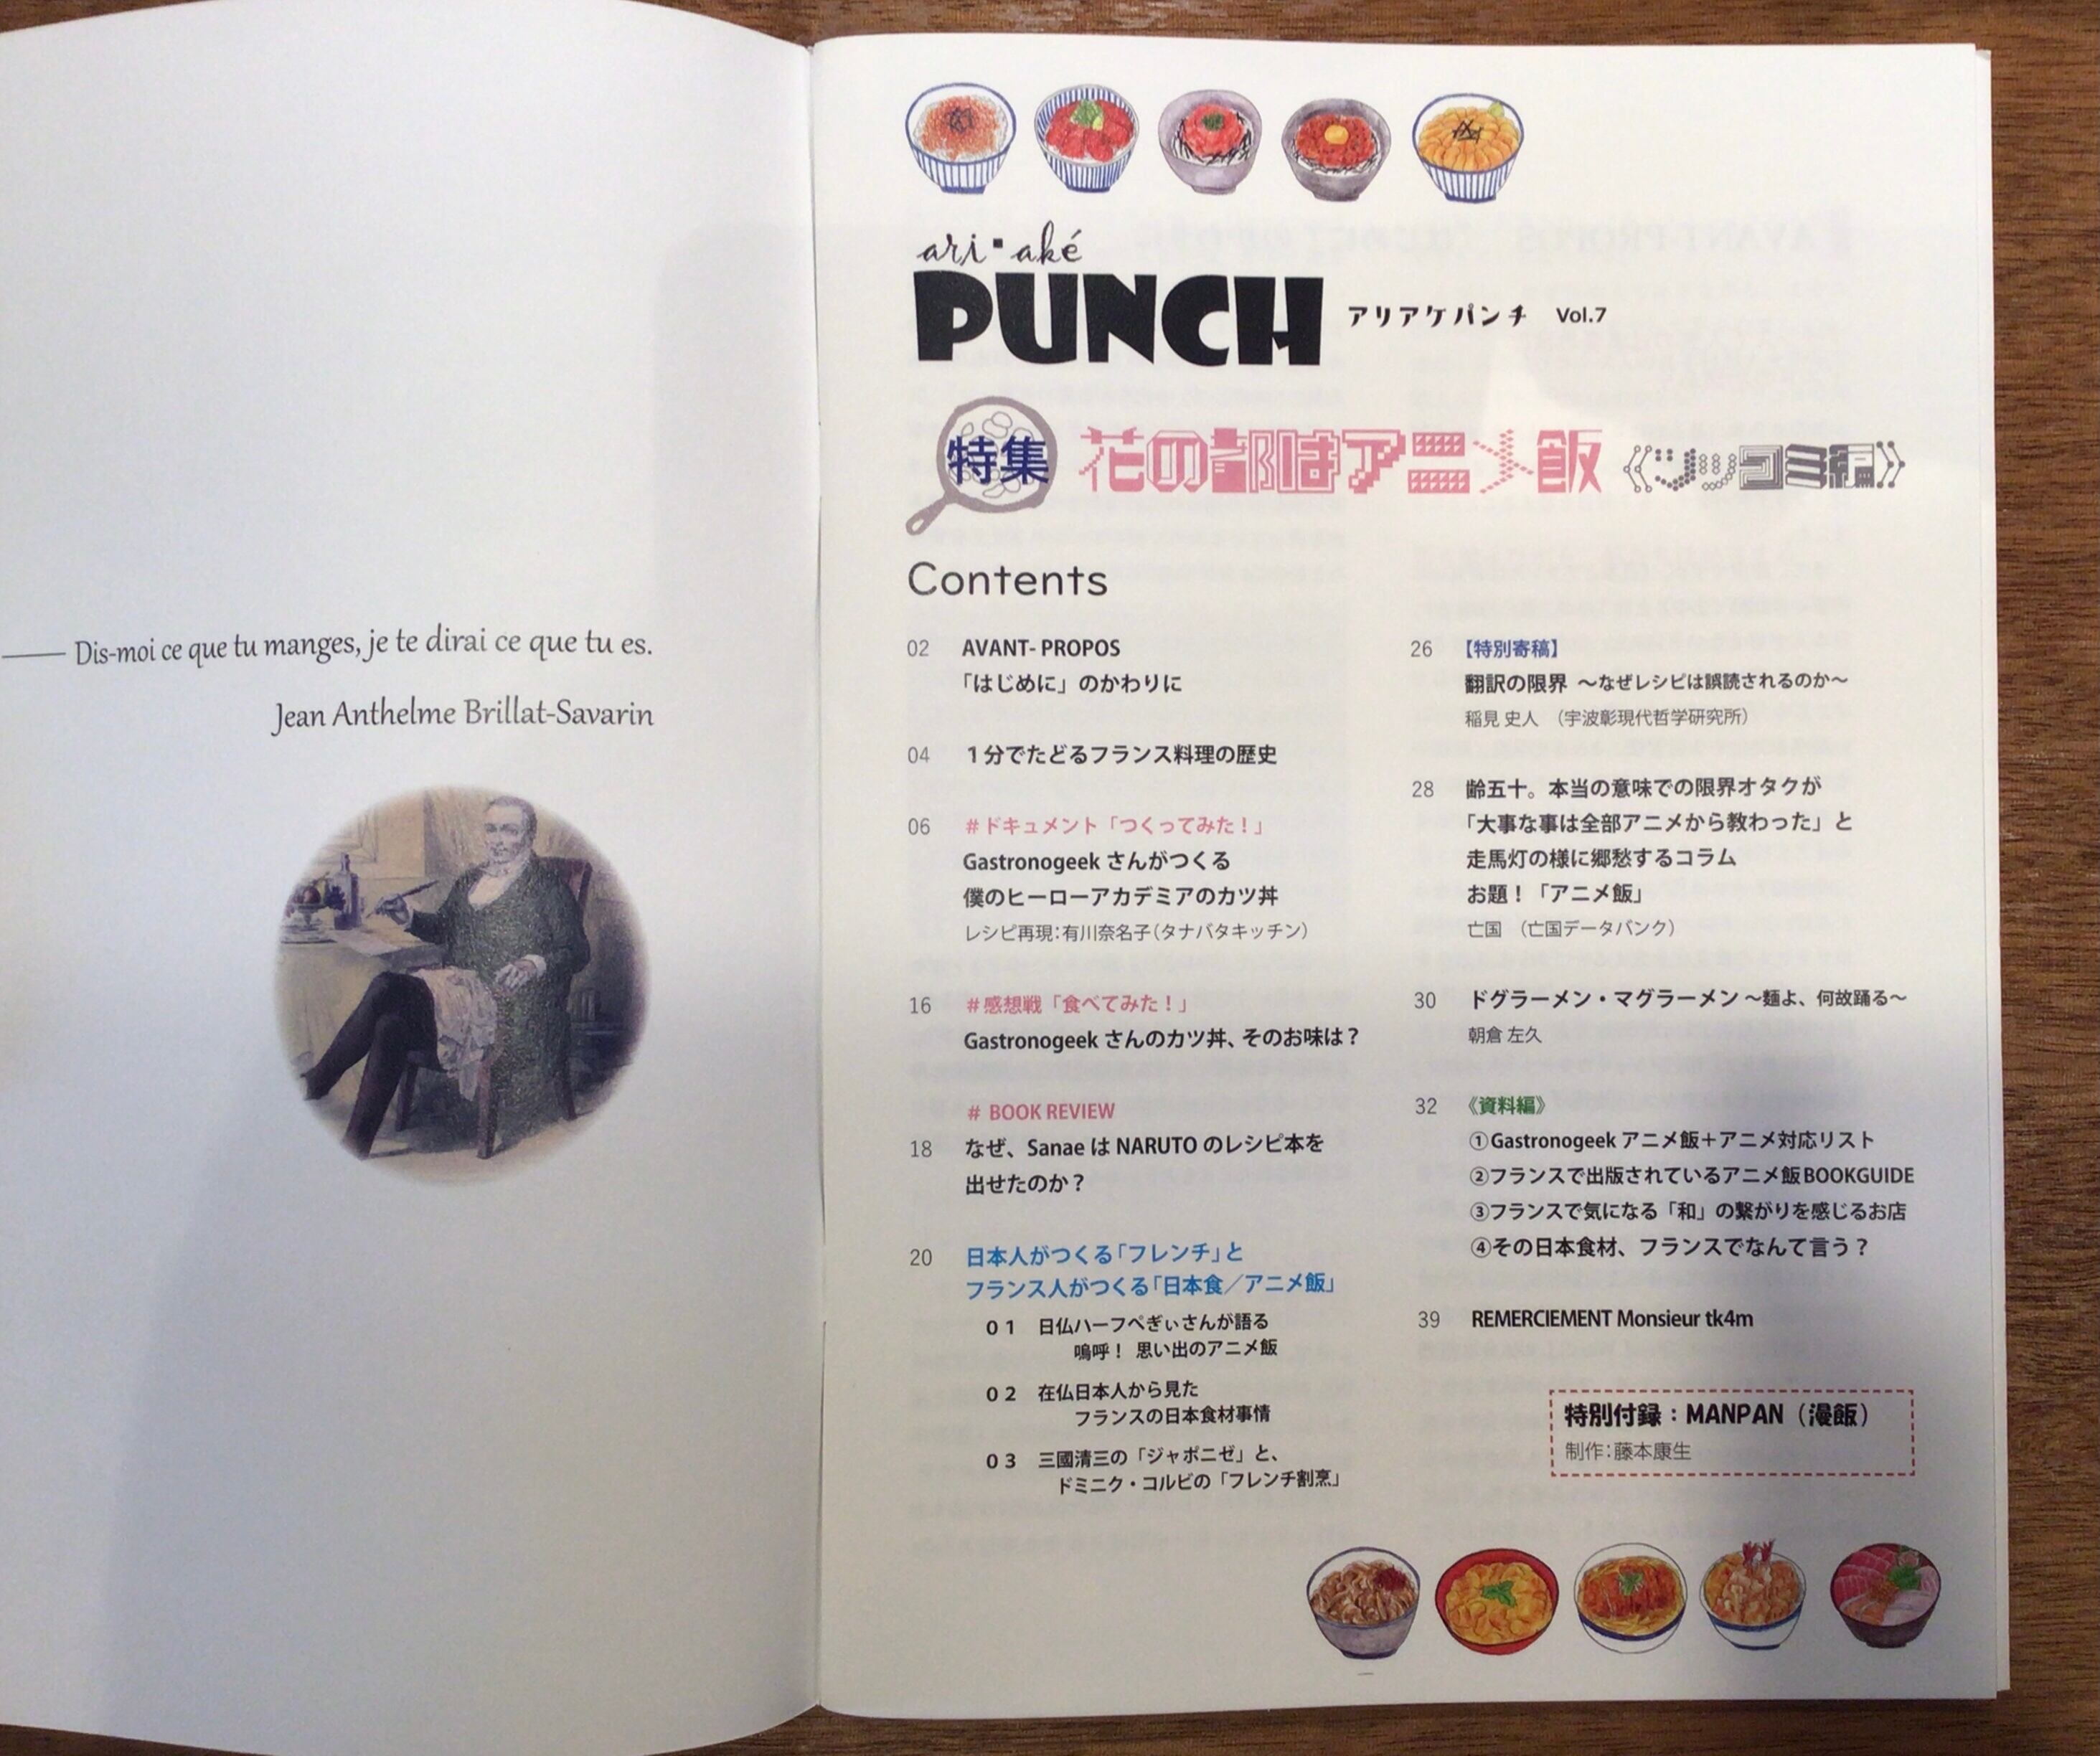 Dis-moi ce que tu manges, je te dirai ce que tu es.
Jean Anthelme Brillat-Savarin
ari・aké
PUNCH アリアケパンチ Vol.7
特集 花の都はアニメ飯《ツッコミ編》
Contents
02 AVANT- PROPOS
「はじめに」のかわりに
04 1分でたどるフランス料理の歴史
06 #ドキュメント「つくってみた!」
Gastronogeek さんがつくる
僕のヒーローアカデミアのカツ丼
レシピ再現:有川奈名子(タナバタキッチン)
16 #感想戦「食べてみた!」
Gastronogeek さんのカツ丼、そのお味は?
# BOOK REVIEW
18 なぜ、Sanae は NARUTO のレシピ本を
出せたのか?
20 日本人がつくる「フレンチ」と
フランス人がつくる「日本食/アニメ飯」
01 日仏ハーフぺぎぃさんが語る
嗚呼! 思い出のアニメ飯
02 在仏日本人から見た
フランスの日本食材事情
03 三國清三の「ジャポニゼ」と、
ドミニク・コルビの「フレンチ割烹」
26 【特別寄稿】
翻訳の限界 〜なぜレシピは誤読されるのか〜
稲見 史人 (宇波彰現代哲学研究所)
28 齢五十。本当の意味での限界オタクが
「大事な事は全部アニメから教わった」と
走馬灯の様に郷愁するコラム
お題!「アニメ飯」
亡国 (亡国データバンク)
30 ドグラーメン・マグラーメン 〜麺よ、何故踊る〜
朝倉 左久
32 《資料編》
①Gastronogeek アニメ飯+アニメ対応リスト
②フランスで出版されているアニメ飯BOOKGUIDE
③フランスで気になる「和」の繋がりを感じるお店
④その日本食材、フランスでなんて言う?
39 REMERCIEMENT Monsieur tk4m
特別付録:MANPAN(漫飯)
制作:藤本康生